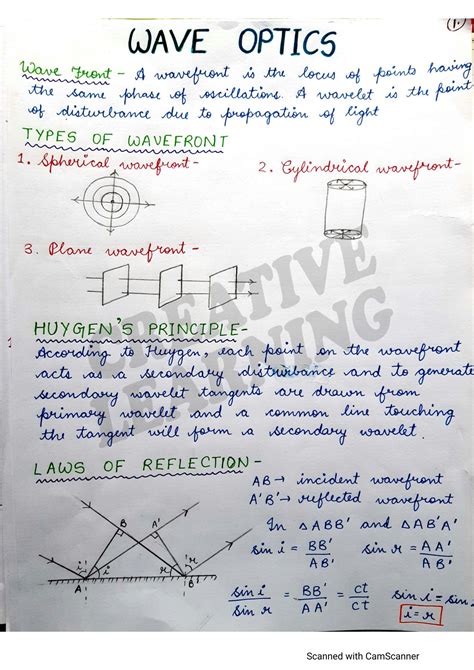 1.
WAVE OPTICS
Wave Front - A wavefront is the locus of points having
the same phase of oscillations. A wavelet is the point
of disturbance due to propagation of light
TYPES OF WAVEFRONT
1. Spherical wavefront-
2. Cylindrical wavefront-
3. Plane wavefront -
CREATIVE
LEARNING
HUYGEN'S PRINCIPLE-
According to Huygen, each point on the wavefront
acts as a secondary disturbance and to generate
secondary wavelet tangents are drawn from
primary wavelet and a common line touching
the tangent will form a secondary wavelet.
LAWS OF REFLECTION -
AB → incident wavefront
A'B' → reflected wavefront
In △ABB' and △AB'A'
sin i = BB'/AB' sin r = AA'/AB'
sin i/sin r = BB'/AA' = ct/ct sin i = sin
i=r
B A'
i i r r
A B'
Scanned with CamScanner